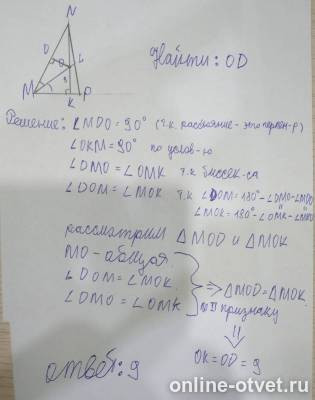 N
D O L
M K P
Найти: OD
Решение: ∠MDO = 90° (т.к. расстояние - это перпен-р)
∠OKM = 90° по услов-ю
∠DMO = ∠OMK т.к биссек-са
∠DOM = ∠MOK т.к ∠DOM = 180° - ∠DMO - ∠MDO
∠MOK = 180° - ∠OMK - ∠MKO
рассмотрим △MOD и △MOK
MO - общая
∠DOM = ∠MOK
∠DMO = ∠OMK
⇒ △MOD = △MOK
по II признаку
⇓
OK = OD = 9
ответ: 9
online-otvet.ru